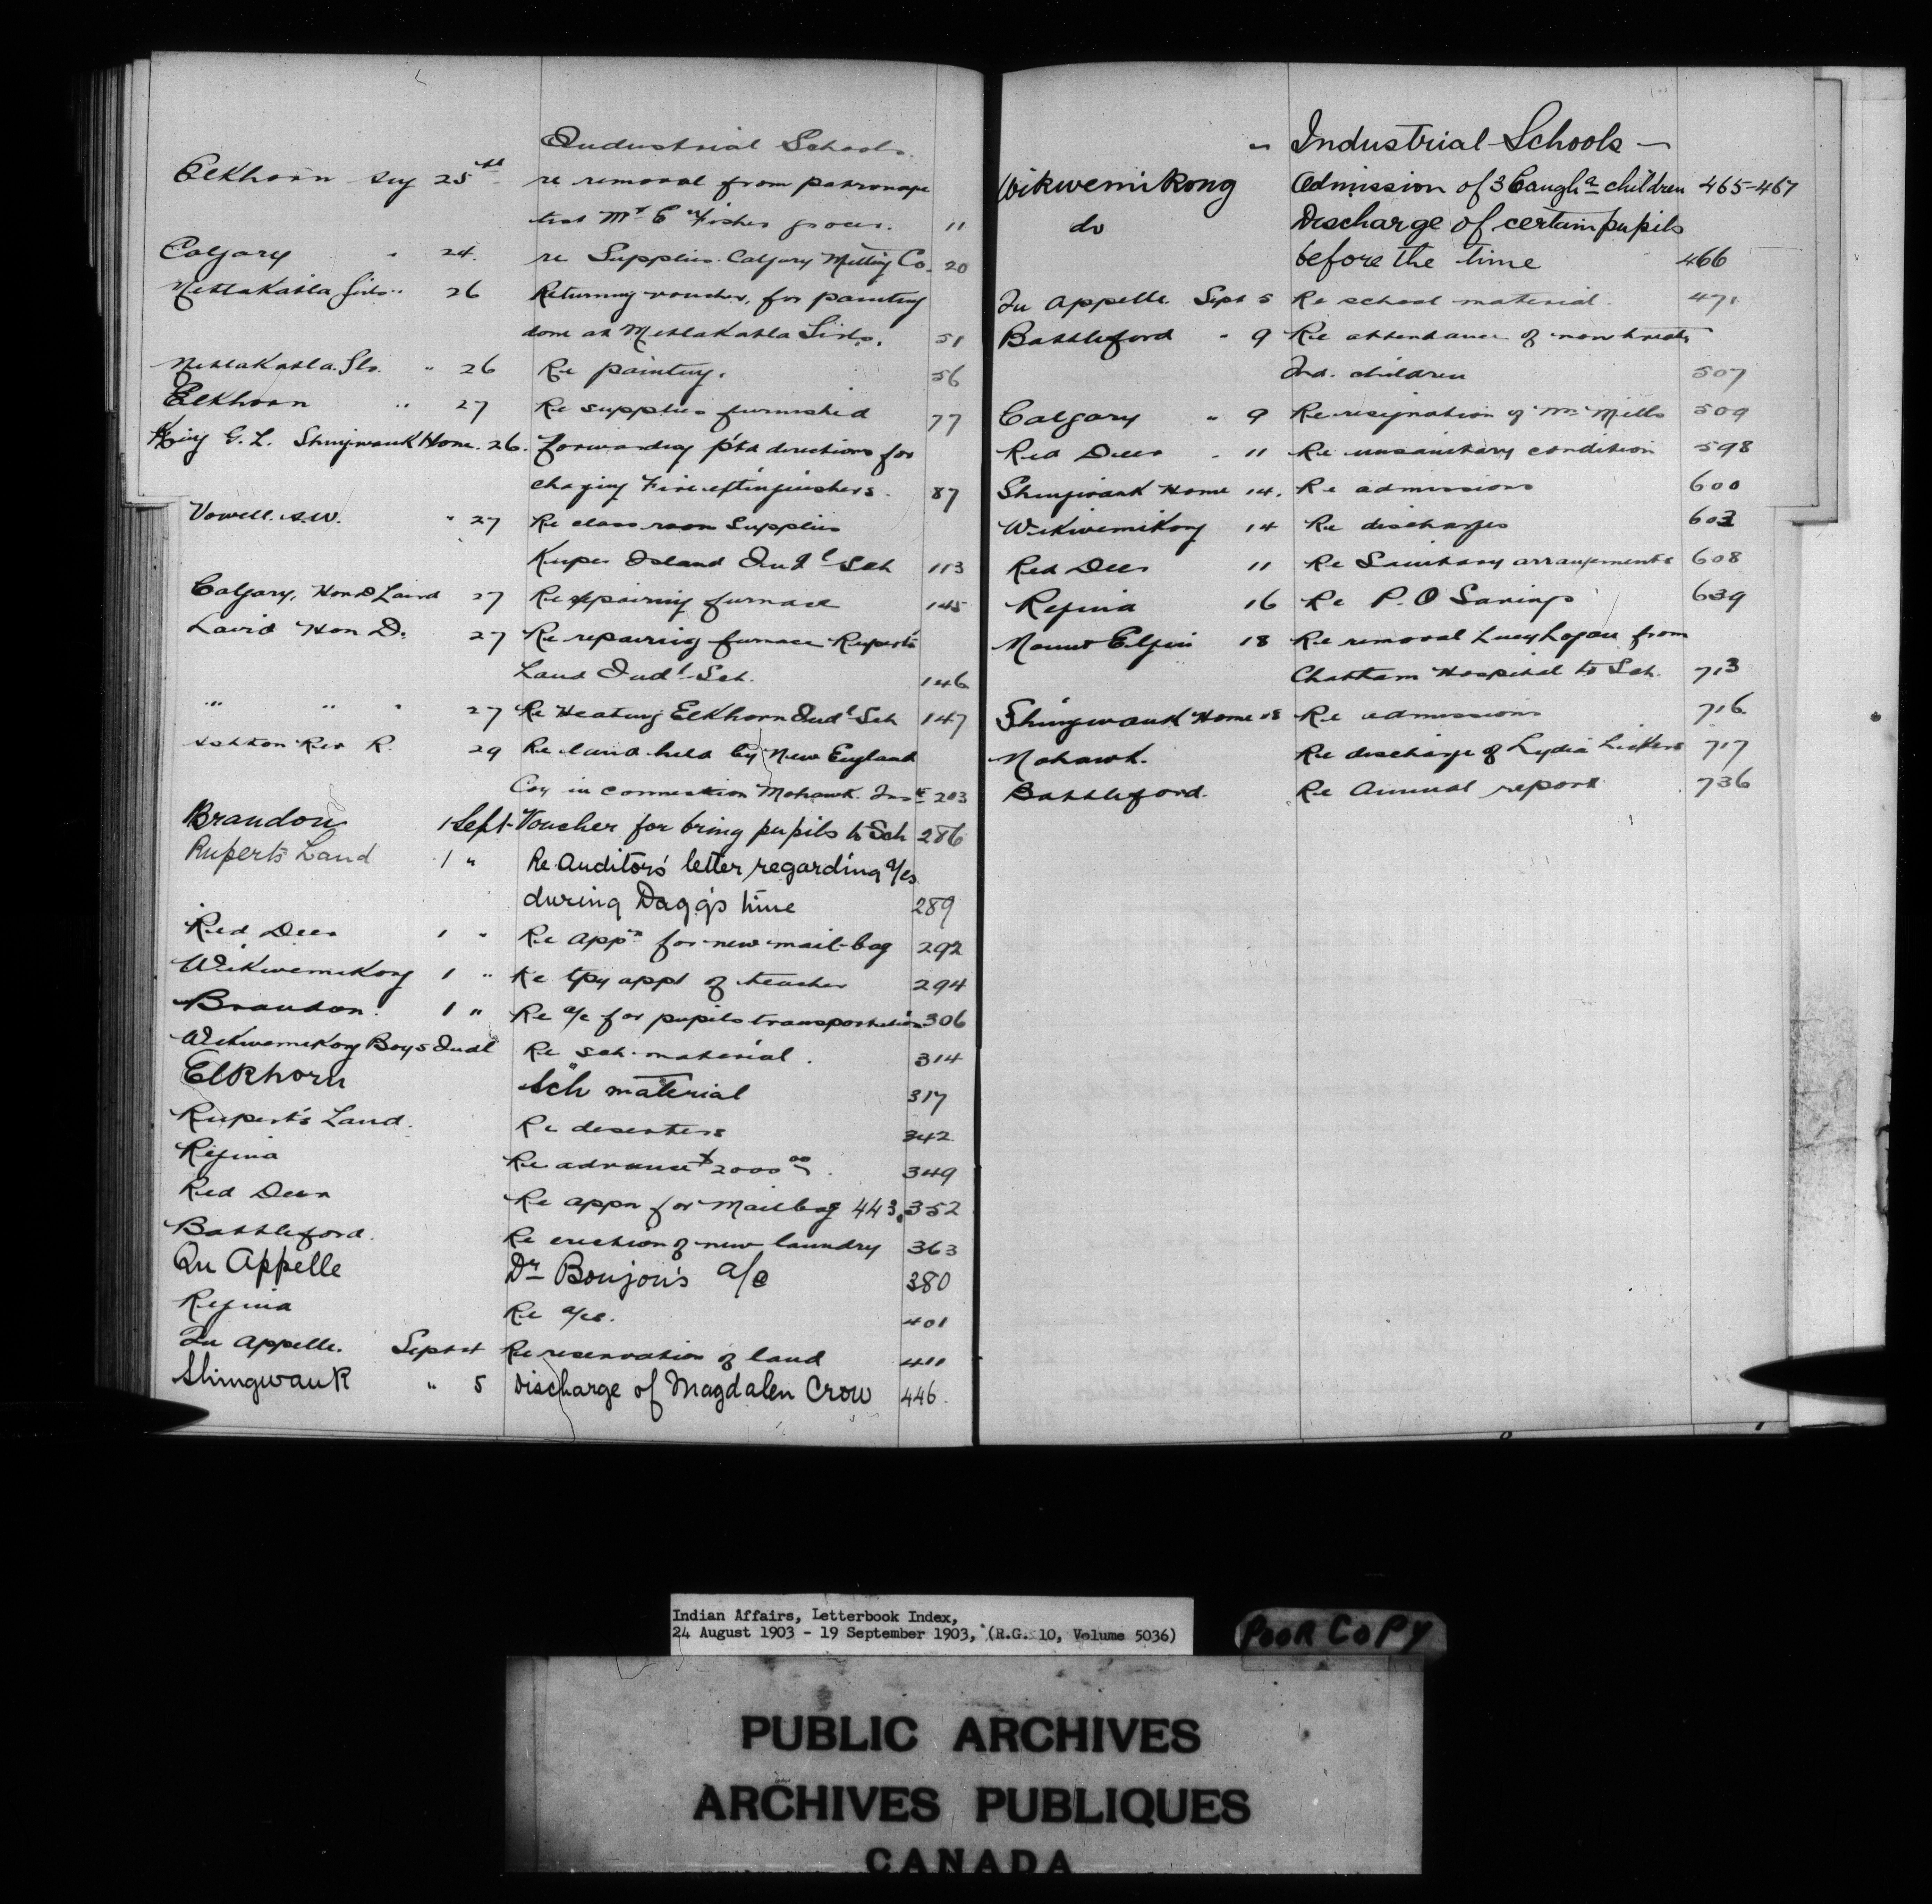 Industrial Schools.
Elkhorn Aug 25th re removal from patronage
list Mr C Fisher grocer. 11
Calgary " 24. re Supplies. Calgary Milling Co. 20
Metlakatla Girls " 26 Returning voucher, for painting
done at Metlakatla Girls. 51
Metlakatla. " 26 Re painting. 56
Elkhorn " 27 Re supplies furnished 77
King G. L. Shingwauk Home. 26. forwarding directions for
charging Fire extinguishers. 87
Vowell. A.W. " 27 Re class room Supplies
Kuper Island Indl Sch 113
Calgary, Hon D Laird 27 Re repairing furnace 145
Laird Hon D. 27 Re repairing furnace Ruperts
Land Indl Sch. 146
" " " 27 Re Heating Elkhorn Indl Sch 147
Ashton Rev R. 29 Re land held by New England
Coy in connection Mohawk Inst 203
Brandon 1 Sept Voucher for bring pupils to Sch 286
Ruperts Land 1 " Re Auditors' letter regarding a/cs
during Dagg's time 289
Red Deer 1 " Re appn for new mail-bag 292
Wikwemikong 1 " Re tpy appt of teacher 294
Brandon. 1 " Re a/c for pupils transportation 306
Wikwemikong Boys Indl Re sch. material. 314
Elkhorn Sch material 317
Rupert's Land. Re deserters 342
Regina Re advance $2000 00. 349
Red Deer Re appn for Mailbag 443, 352
Battleford. Re erection of new laundry 363
Qu Appelle Dr Boujou's a/c 380
Regina Re a/cs. 401
Qu Appelle. Sept 4 Re reservation of land 411
Shingwauk " 5 Discharge of Magdalen Crow 446
" Industrial Schools —
Wikwemikong Admission of 3 Caugha children 465-467
do Discharge of certain pupils
before the time 466
Qu Appelle. Sept 5 Re school material. 471
Battleford " 9 Re attendance of non treaty
Ind. children 507
Calgary " 9 Re resignation of Mr Mills 509
Red Deer " 11 Re unsanitary condition 598
Shingwauk Home 14. Re admissions 600
Wikwemikong 14 Re discharges 603
Red Deer 11 Re Sanitary arrangements 608
Regina 16 Re P.O Savings 639
Mount Elgin 18 Re removal Lucy Logan from
Chatham Hospital to Sch. 713
Shingwauk Home 18 Re admissions 716
Mohawk. Re discharge of Lydia Lickers 717
Battleford. Re Annual report 736
Indian Affairs, Letterbook Index,
24 August 1903 - 19 September 1903, (R.G. 10, Volume 5036)
POOR COPY
PUBLIC ARCHIVES
ARCHIVES PUBLIQUES
CANADA